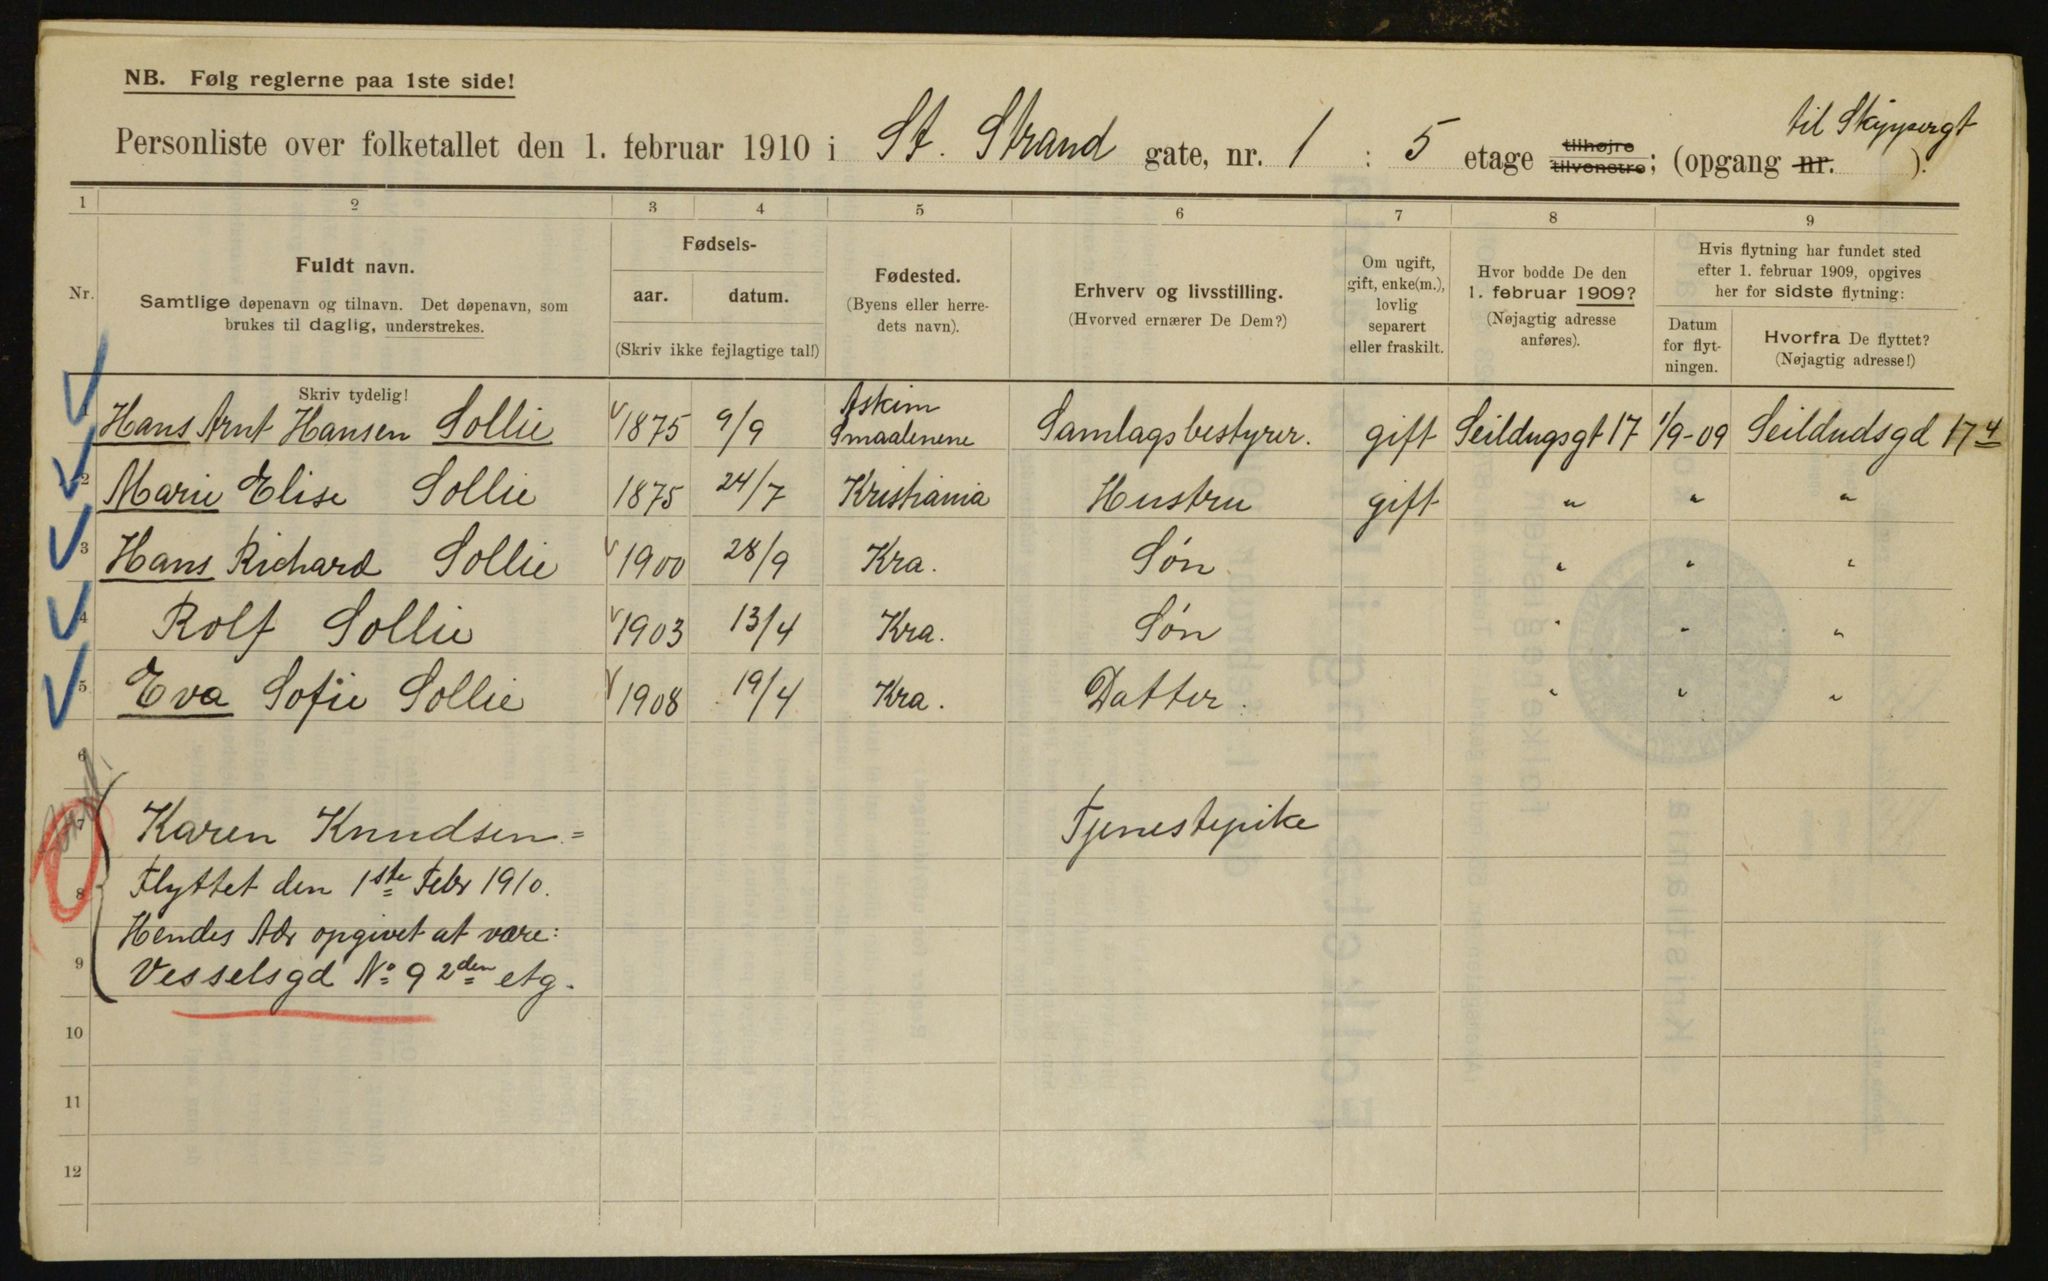 NB. Følg reglerne paa 1ste side!
til Skippergt
Personliste over folketallet den 1. februar 1910 i St. Strand gate, nr. 1 : 5 etage tilhøjre tilvenstre; (opgang nr. ).
1 2 3 4 5 6 7 8 9
Nr.
Fuldt navn.
Samtlige døpenavn og tilnavn. Det døpenavn, som
brukes til daglig, understrekes.
Skriv tydelig!
Fødsels-
aar. datum.
(Skriv ikke fejlagtige tal!)
Fødested.
(Byens eller herre-
dets navn).
Erhverv og livsstilling.
(Hvorved ernærer De Dem?)
Om ugift,
gift, enke(m.),
lovlig
separert
eller fraskilt.
Hvor bodde De den
1. februar 1909?
(Nøjagtig adresse
anføres).
Hvis flytning har fundet sted
efter 1. februar 1909, opgives
her for sidste flytning:
Datum
for flyt-
ningen.
Hvorfra De flyttet?
(Nøjagtig adresse!)
1 Hans Arnt Hansen Sollie 1875 9/9 Askim Smaalenene Samlagsbestyrer. gift Seildugsgt 17 1/9-09 Seildudsgd 17 4
2 Marie Elise Sollie 1875 24/7 Kristiania Hustru gift " " "
3 Hans Richard Sollie 1900 28/9 Kra. Søn " " "
4 Rolf Sollie 1903 13/4 Kra. Søn " " "
5 Eva Sofie Sollie 1908 19/4 Kra. Datter. " " "
6
7 Karen Knudsen = Tjenestepike
8 Flyttet den 1ste Febr 1910.
Hendes Adr opgivet at være:
9 Vesselsgd No 9 2den etg.
10
11
12